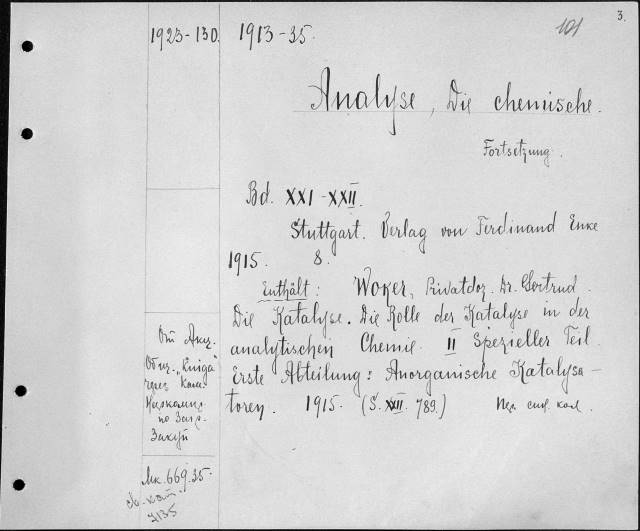 3.
101
1923-130.
1913-35.
Analyse, Die chemische.
Fortsetzung.
Bd. XXI-XXII.
Stuttgart. Verlag von Ferdinand Enke
1915. 8.
Enthält: Woker, Privatdoz. Dr. Gertrud.
Die Katalyse. Die Rolle der Katalyse in der
analytischen Chemie. II Spezieller Teil.
Erste Abteilung: Anorganische Katalysa-
toren. 1915. (S. XXII. 789.)
От Акц.
Общ. "Kniga"
через Ком.
по Загр.
Закуп
669.35.
7135